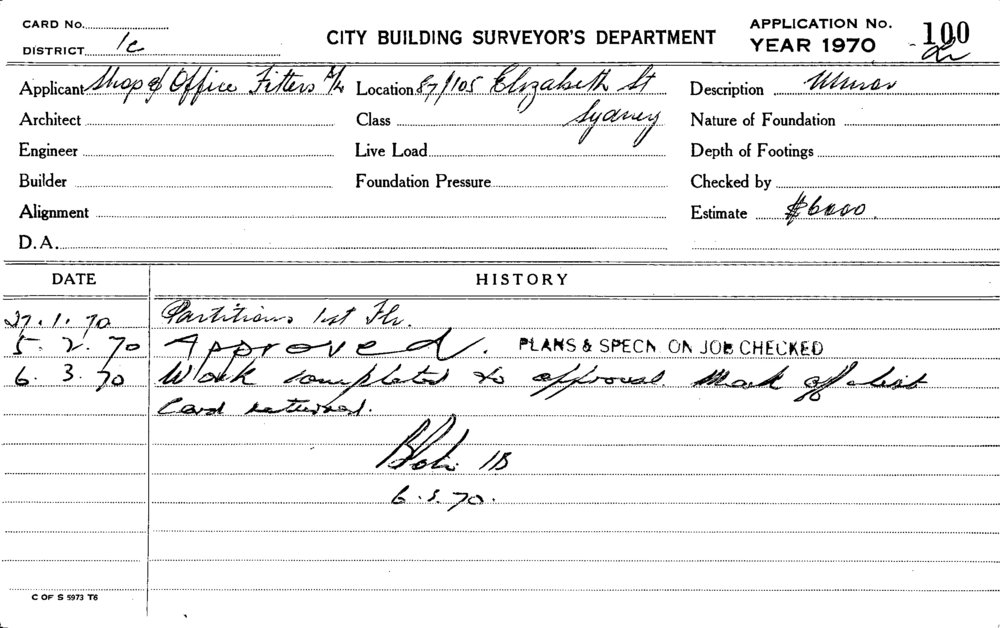 CARD No.
DISTRICT 1c
CITY BUILDING SURVEYOR'S DEPARTMENT
APPLICATION No. 100
YEAR 1970
Applicant Shop & Office Fitters P/L Location 87/105 Elizabeth St Description Minor
Architect Class Sydney Nature of Foundation
Engineer Live Load Depth of Footings
Builder Foundation Pressure Checked by
Alignment Estimate $6000.
D.A.
DATE HISTORY
27.1.70 Partitions 1st Flr.
5.2.70 Approved. PLANS & SPECN ON JOB CHECKED
6.3.70 Work completed to approval Mark off list
Card returned.
1B
6.3.70.
C OF S 5973 T6